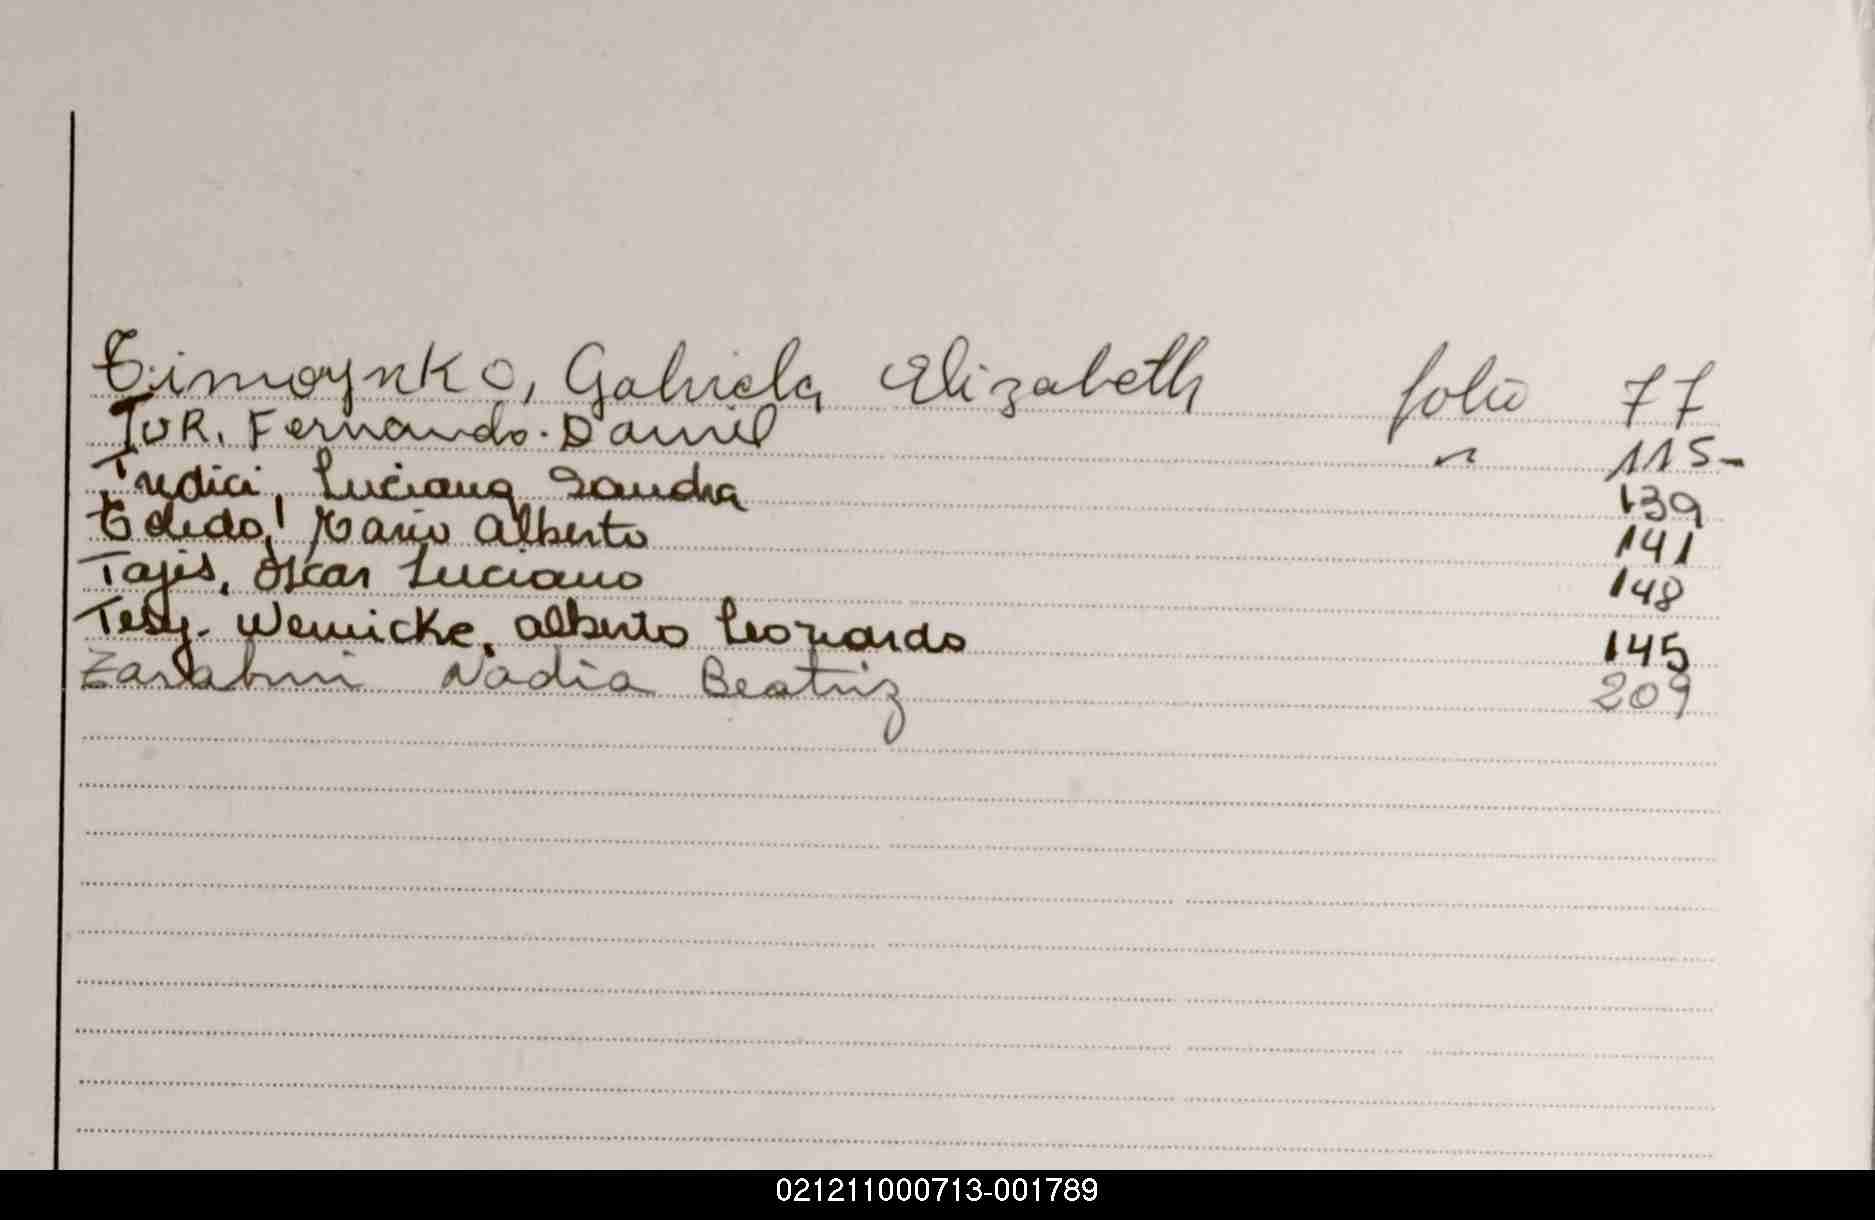 Timoynko, Gabriela Elizabeth folio 77
TUR, Fernando Daniel " 115-
Tudici, Luciana Sandra 139
Toledo, Mario Alberto 141
Tajes, Oscar Luciano 148
Wernicke, Alberto Leonardo 145
Nadia Beatriz 209
021211000713-001789